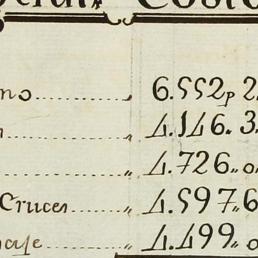 Costo
no......... 6.552p 2.
4.146. 3.
4.726..0
Cruces...... 4.597..6
4.499..0